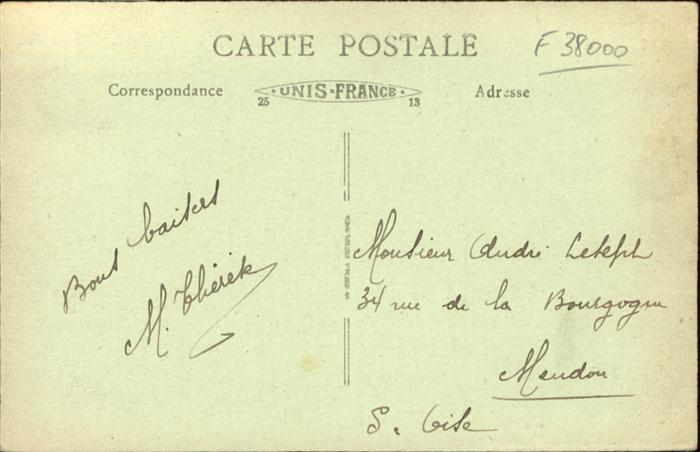 CARTE POSTALE
F 38000
Correspondance
UNIS-FRANCE
Adresse
25
13
Bons baisers
M. Thérèse
Monsieur André
34 rue de la Bourgogne
Meudon
S. Oise